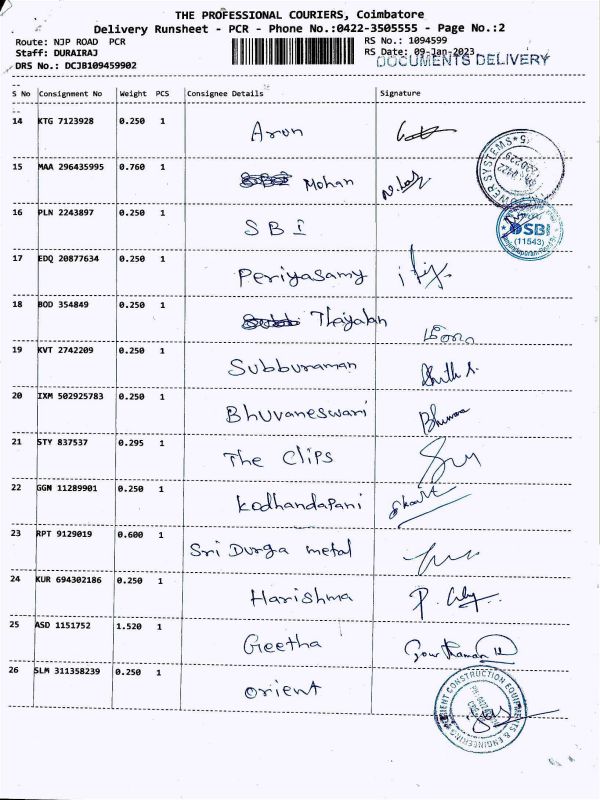 THE PROFESSIONAL COURIERS, Coimbatore
Delivery Runsheet - PCR - Phone No.:0422-3505555 - Page No.:2
Route: NJP ROAD PCR RS No.: 1094599
Staff: DURAIRAJ RS Date: 09-Jan-2023
DOCUMENTS DELIVERY
DRS No.: DCJB109459902
S No Consignment No Weight PCS Consignee Details Signature
14 KTG 7123928 0.250 1 Aron
15 MAA 296435995 0.760 1 Mohan
16 PLN 2243897 0.250 1 SBI
SBI
(11543)
17 EDQ 20877634 0.250 1 Periyasamy
18 BOD 354849 0.250 1 Thayalan
19 KVT 2742209 0.250 1 Subburaman
20 IXM 502925783 0.250 1 Bhuvaneswari
21 STY 837537 0.295 1 The Clips
22 GGN 11289901 0.250 1 Kodhandapani
23 RPT 9129019 0.600 1 Sri Durga metal
24 KUR 694302186 0.250 1 Harishma
25 ASD 1151752 1.520 1 Geetha
26 SLM 311358239 0.250 1 Orient
ORIENT CONSTRUCTION EQUIPMENTS & ENGINEERING